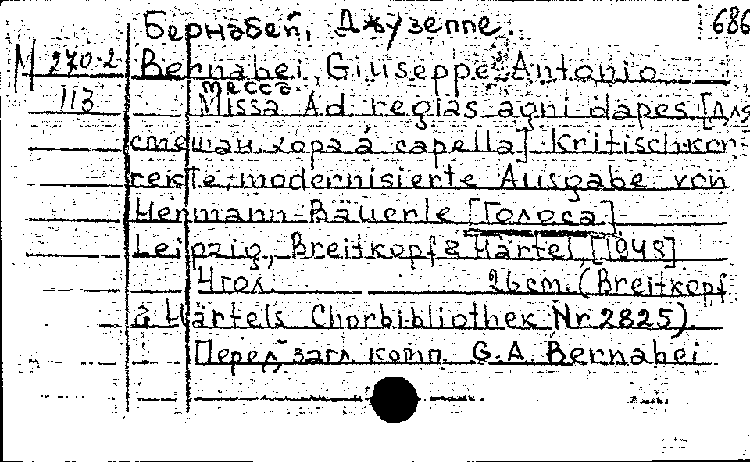 Бернабей, Джузеппе. 686
М 270-2 Bernabei, Giuseppe Antonio
Месса.
113 Missa Ad regias agni dapes [Для
смешан. хора à capella] Kritischkor-
rekte, modernisierte Ausgabe von
Hermann Bäuerle [Голоса]
Leipzig, Breitkopf & Härtel [1948]
4 гол. 26 cm. (Breitkopf
& Härtels Chorbibliothek Nr. 2825).
Перед загл. комп. G. A. Bernabei